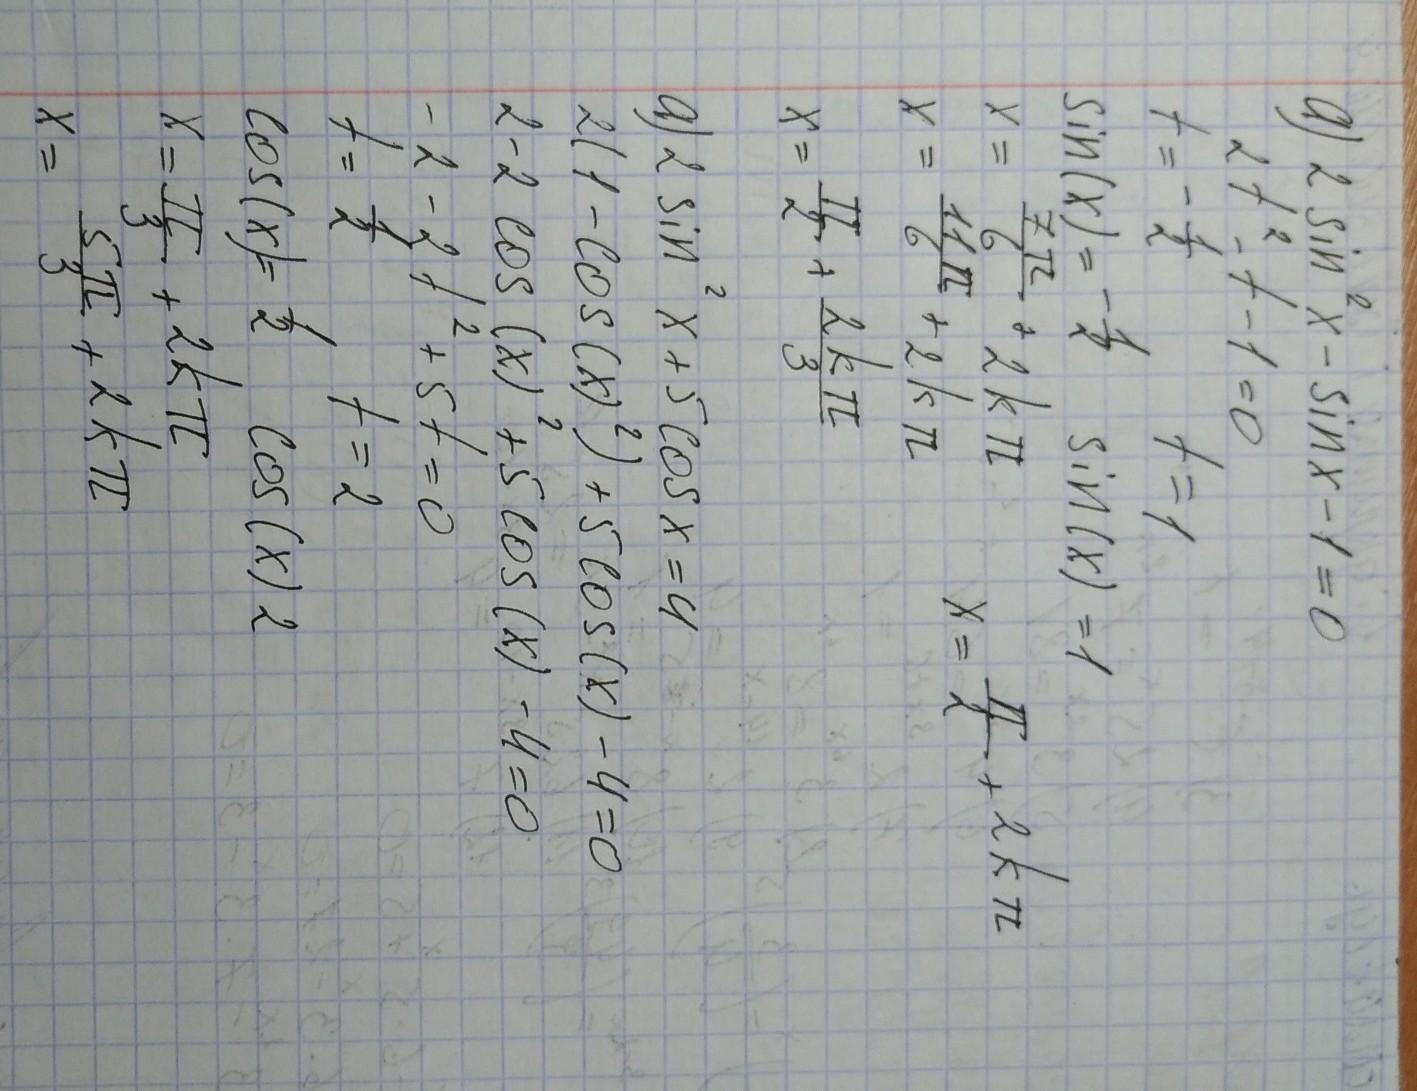 a) 2 sin² x - sin x - 1 = 0
2t² - t - 1 = 0
t = - 1/2 t = 1
sin(x) = - 1/2 sin(x) = 1
x = 7π/6 + 2kπ
x = 11π/6 + 2kπ x = π/2 + 2kπ
x = π/2 + 2kπ/3
a) 2 sin² x + 5 cos x = 4
2(1 - cos(x)²) + 5 cos(x) - 4 = 0
2 - 2 cos(x)² + 5 cos(x) - 4 = 0
- 2 - 2t² + 5t = 0
t = 1/2 t = 2
cos(x) = 1/2 cos(x) 2
x = π/3 + 2kπ
x = 5π/3 + 2kπ